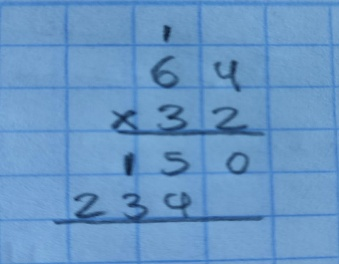 1
64
×32
150
234